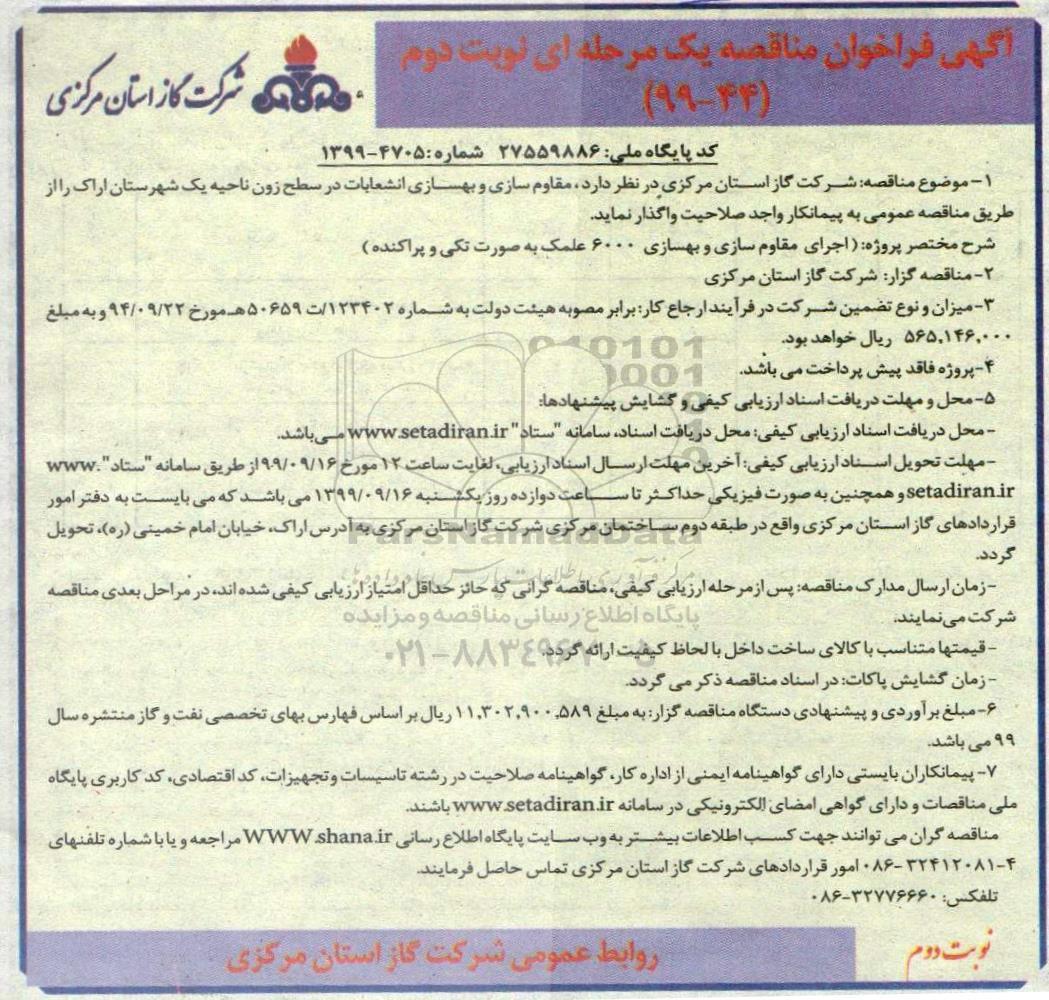 آگهی فراخوان مناقصه یک مرحله ای نوبت دوم
(۹۹-۴۴)
شرکت گاز استان مرکزی
کد پایگاه ملی: ۲۷۵۵۹۸۸۶ شماره: ۴۷۰۵-۱۳۹۹
۱- موضوع مناقصه: شرکت گاز استان مرکزی در نظر دارد، مقاوم سازی و بهسازی انشعابات در سطح زون ناحیه یک شهرستان اراک را از
طریق مناقصه عمومی به پیمانکار واجد صلاحیت واگذار نماید.
شرح مختصر پروژه: (اجرای مقاوم سازی و بهسازی ۶۰۰۰ علمک به صورت تکی و پراکنده)
۲- مناقصه گزار: شرکت گاز استان مرکزی
۳- میزان و نوع تضمین شرکت در فرآیند ارجاع کار: برابر مصوبه هیئت دولت به شماره ۱۲۳۴۰۲/ت ۵۰۶۵۹ هـ مورخ ۹۴/۰۹/۲۲ و به مبلغ
۵۶۵,۱۴۶,۰۰۰ ریال خواهد بود.
۴- پروژه فاقد پیش پرداخت می باشد.
۵- محل و مهلت دریافت اسناد ارزیابی کیفی و گشایش پیشنهادها:
- محل دریافت اسناد ارزیابی کیفی: محل دریافت اسناد، سامانه "ستاد" www.setadiran.ir می‌باشد.
- مهلت تحویل اسناد ارزیابی کیفی: آخرین مهلت ارسال اسناد ارزیابی، لغایت ساعت ۱۲ مورخ ۹۹/۰۹/۱۶ از طریق سامانه "ستاد" www.
setadiran.ir و همچنین به صورت فیزیکی حداکثر تا ساعت دوازده روز یکشنبه ۱۳۹۹/۰۹/۱۶ می باشد که می بایست به دفتر امور
قراردادهای گاز استان مرکزی واقع در طبقه دوم ساختمان مرکزی شرکت گاز استان مرکزی به آدرس اراک، خیابان امام خمینی (ره)، تحویل
گردد.
- زمان ارسال مدارک مناقصه: پس از مرحله ارزیابی کیفی، مناقصه گرانی که حائز حداقل امتیاز ارزیابی کیفی شده اند، در مراحل بعدی مناقصه
شرکت می‌نمایند.
- قیمتها متناسب با کالای ساخت داخل با لحاظ کیفیت ارائه گردد.
- زمان گشایش پاکات: در اسناد مناقصه ذکر می گردد.
۶- مبلغ برآوردی و پیشنهادی دستگاه مناقصه گزار: به مبلغ ۱۱,۳۰۲,۹۰۰,۵۸۹ ریال بر اساس فهارس بهای تخصصی نفت و گاز منتشره سال
۹۹ می باشد.
۷- پیمانکاران بایستی دارای گواهینامه ایمنی از اداره کار، گواهینامه صلاحیت در رشته تاسیسات و تجهیزات، کد اقتصادی، کد کاربری پایگاه
ملی مناقصات و دارای گواهی امضای الکترونیکی در سامانه www.setadiran.ir باشند.
مناقصه گران می توانند جهت کسب اطلاعات بیشتر به وب سایت پایگاه اطلاع رسانی WWW.shana.ir مراجعه و یا با شماره تلفنهای
۴-۳۲۴۱۲۰۸۱-۰۸۶ امور قراردادهای شرکت گاز استان مرکزی تماس حاصل فرمایند.
تلفکس: ۳۲۷۷۶۶۶۰-۰۸۶
نوبت دوم
روابط عمومی شرکت گاز استان مرکزی
ParsNamadData
پایگاه اطلاع رسانی مناقصه و مزایده